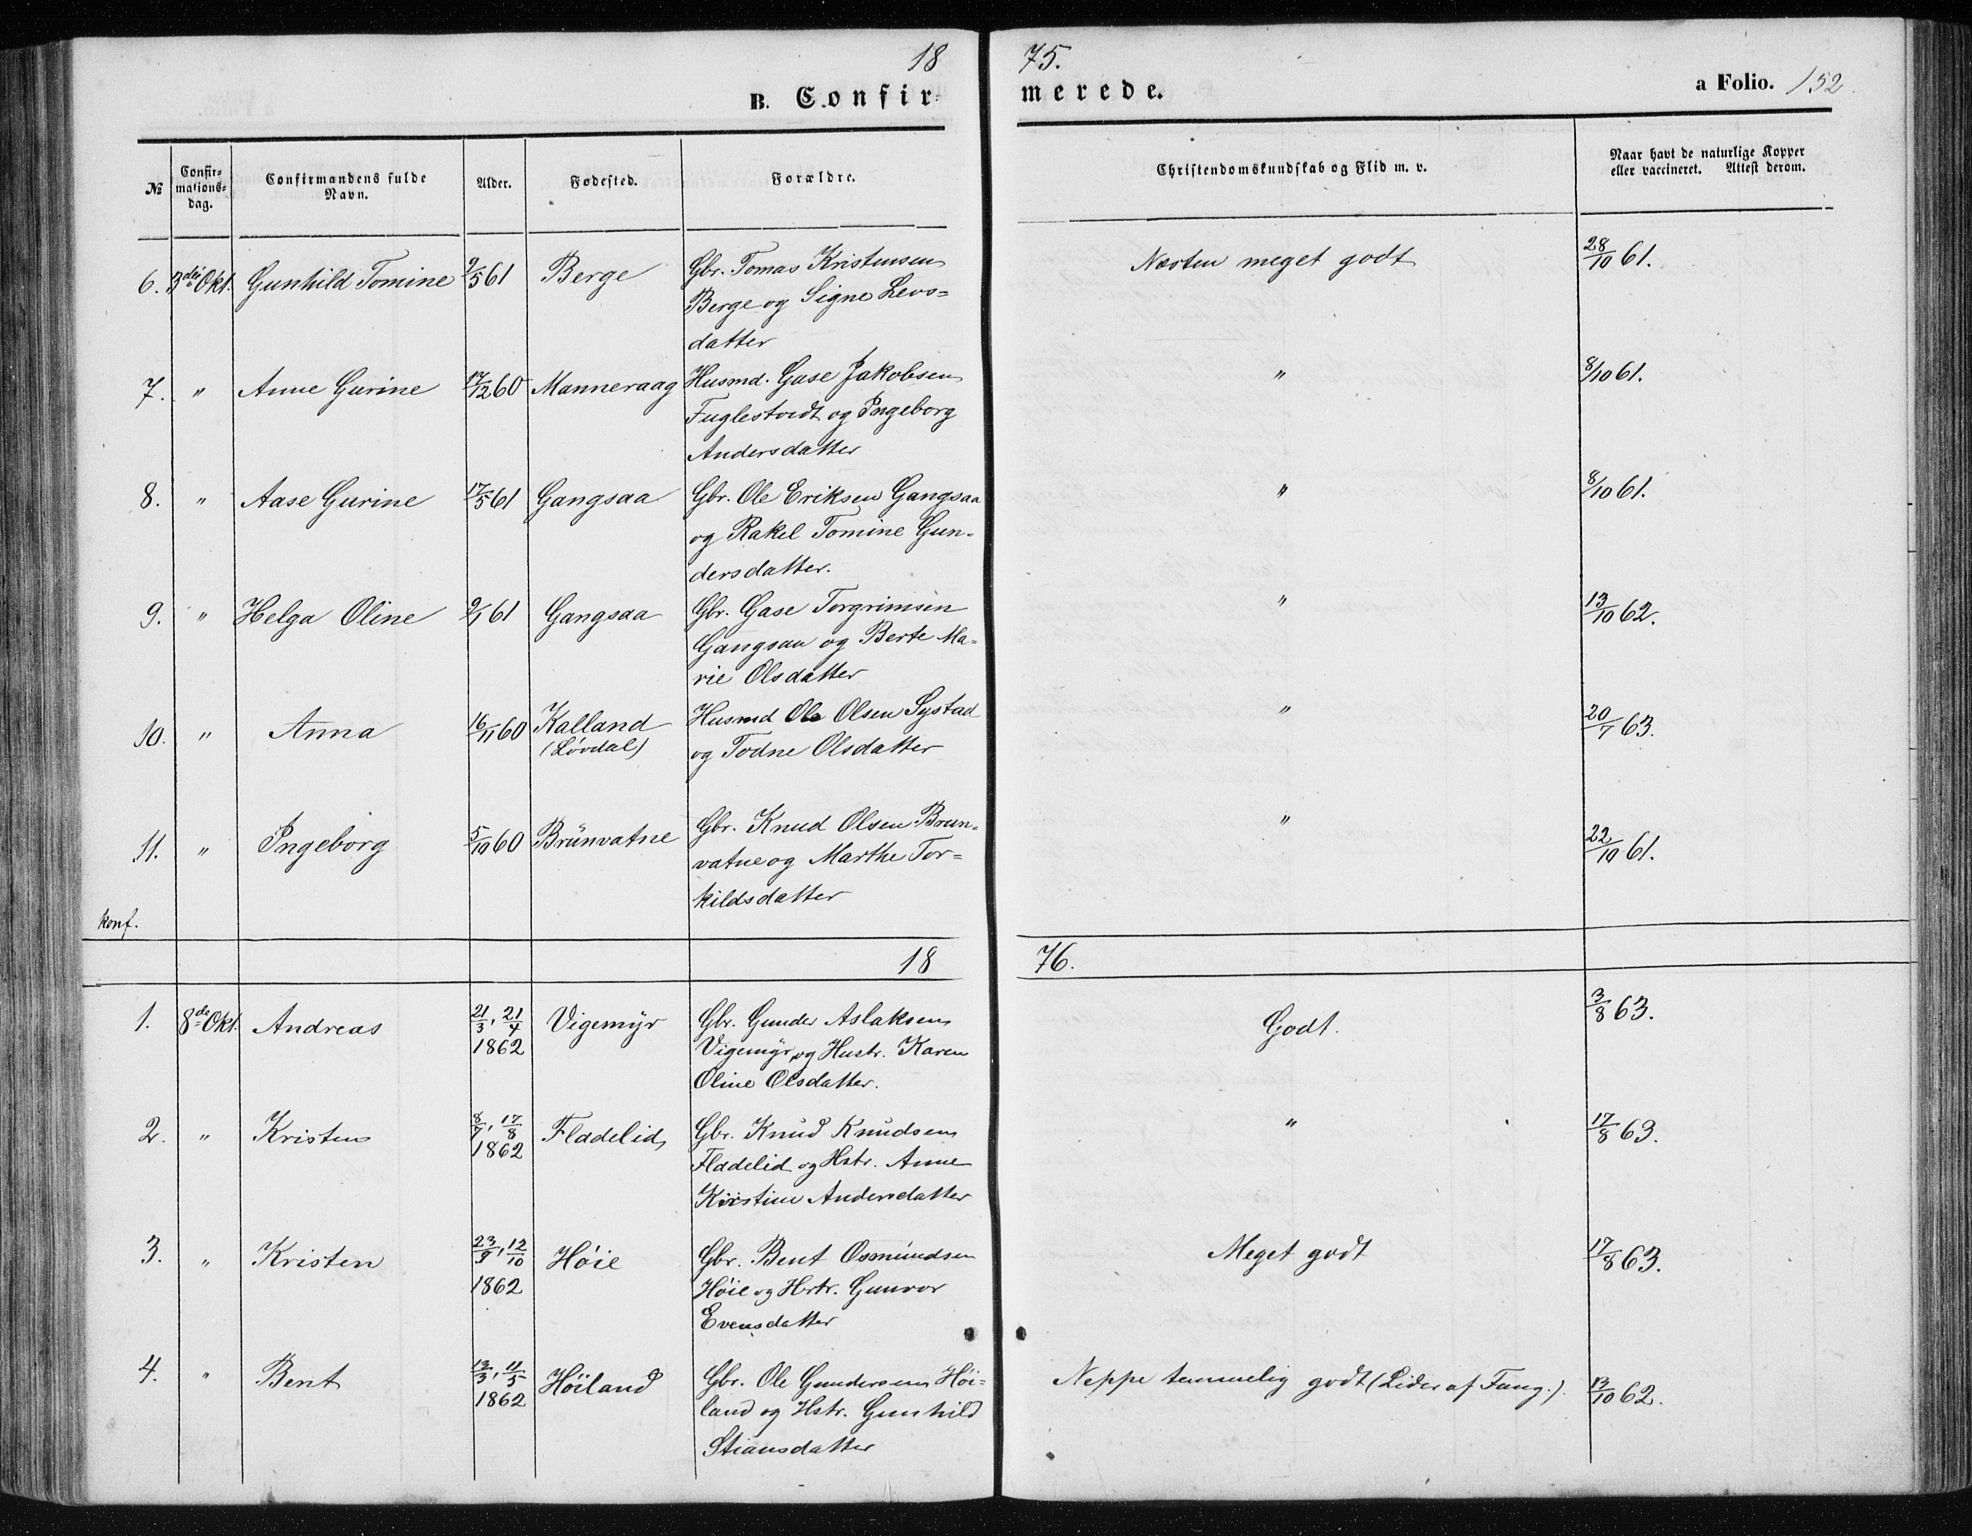 18 75.
B. Confir- merede. a Folio. 152.
№ Confir-mations-dag. Confirmandens fulde Navn. Alder. Fødested. Forældre. Christendomskundskab og Flid m. v. Naar havt de naturlige Kopper eller vaccineret. Attest derom.
6. 3die Okt. Gunhild Tomine 2/5 61 Berge Gbr. Tomas Kristensen Næsten meget godt 28/10 61.
Berge og Signe Levs=
datter
7. " Anne Gurine 17/12 60 Manneraag Husmd. Gase Jakobsen " 8/10 61.
Fuglestvedt og Ingeborg
Andersdatter
8. " Aase Gurine 17/5 61 Gangsaa Gbr. Ole Eriksen Gangsaa " 8/10 61.
og Rakel Tomine Gun-
dersdatter.
9. " Helga Oline 2/1 61 Gangsaa Gbr. Gase Torgrimsen " 13/10 62.
Gangsaa og Berte Ma-
rie Olsdatter
10. " Anna 16/11 60 Kalland Husmd Ole Olsen Systad " 20/7 63.
(Løvdal) og Todne Olsdatter
11. " Ingeborg 5/10 60 Brunvatne Gbr. Knud Olsen Brun- " 22/10 61.
vatne og Marthe Tor=
kildsdatter
konf.
18 76.
1. 8de Okt. Andreas 21/3, 21/4 Vigemyr Gbr. Gunder Aslaksen Godt. 3/8 63.
1862 Vigemyr og Hustr. Karen
Oline Olsdatter.
2. " Kristen 8/7, 17/8 Fladelid Gbr. Knud Knudsen " 17/8 63.
1862 Fladelid og Hstr. Anne
Kirstine Andersdatter
3. " Kristen 23/9, 12/10 Høie Gbr. Bent Osmundsen Meget godt 17/8 63.
1862 Høie og Hstr. Gunvor
Evensdatter
4. " Bent 13/3, 11/5 Høiland Gbr. Ole Gundersen Høi= Neppe temmelig godt (Lider af Tung.). 13/10 62.
1862 land og Hstr. Gunhild
Stiansdatter